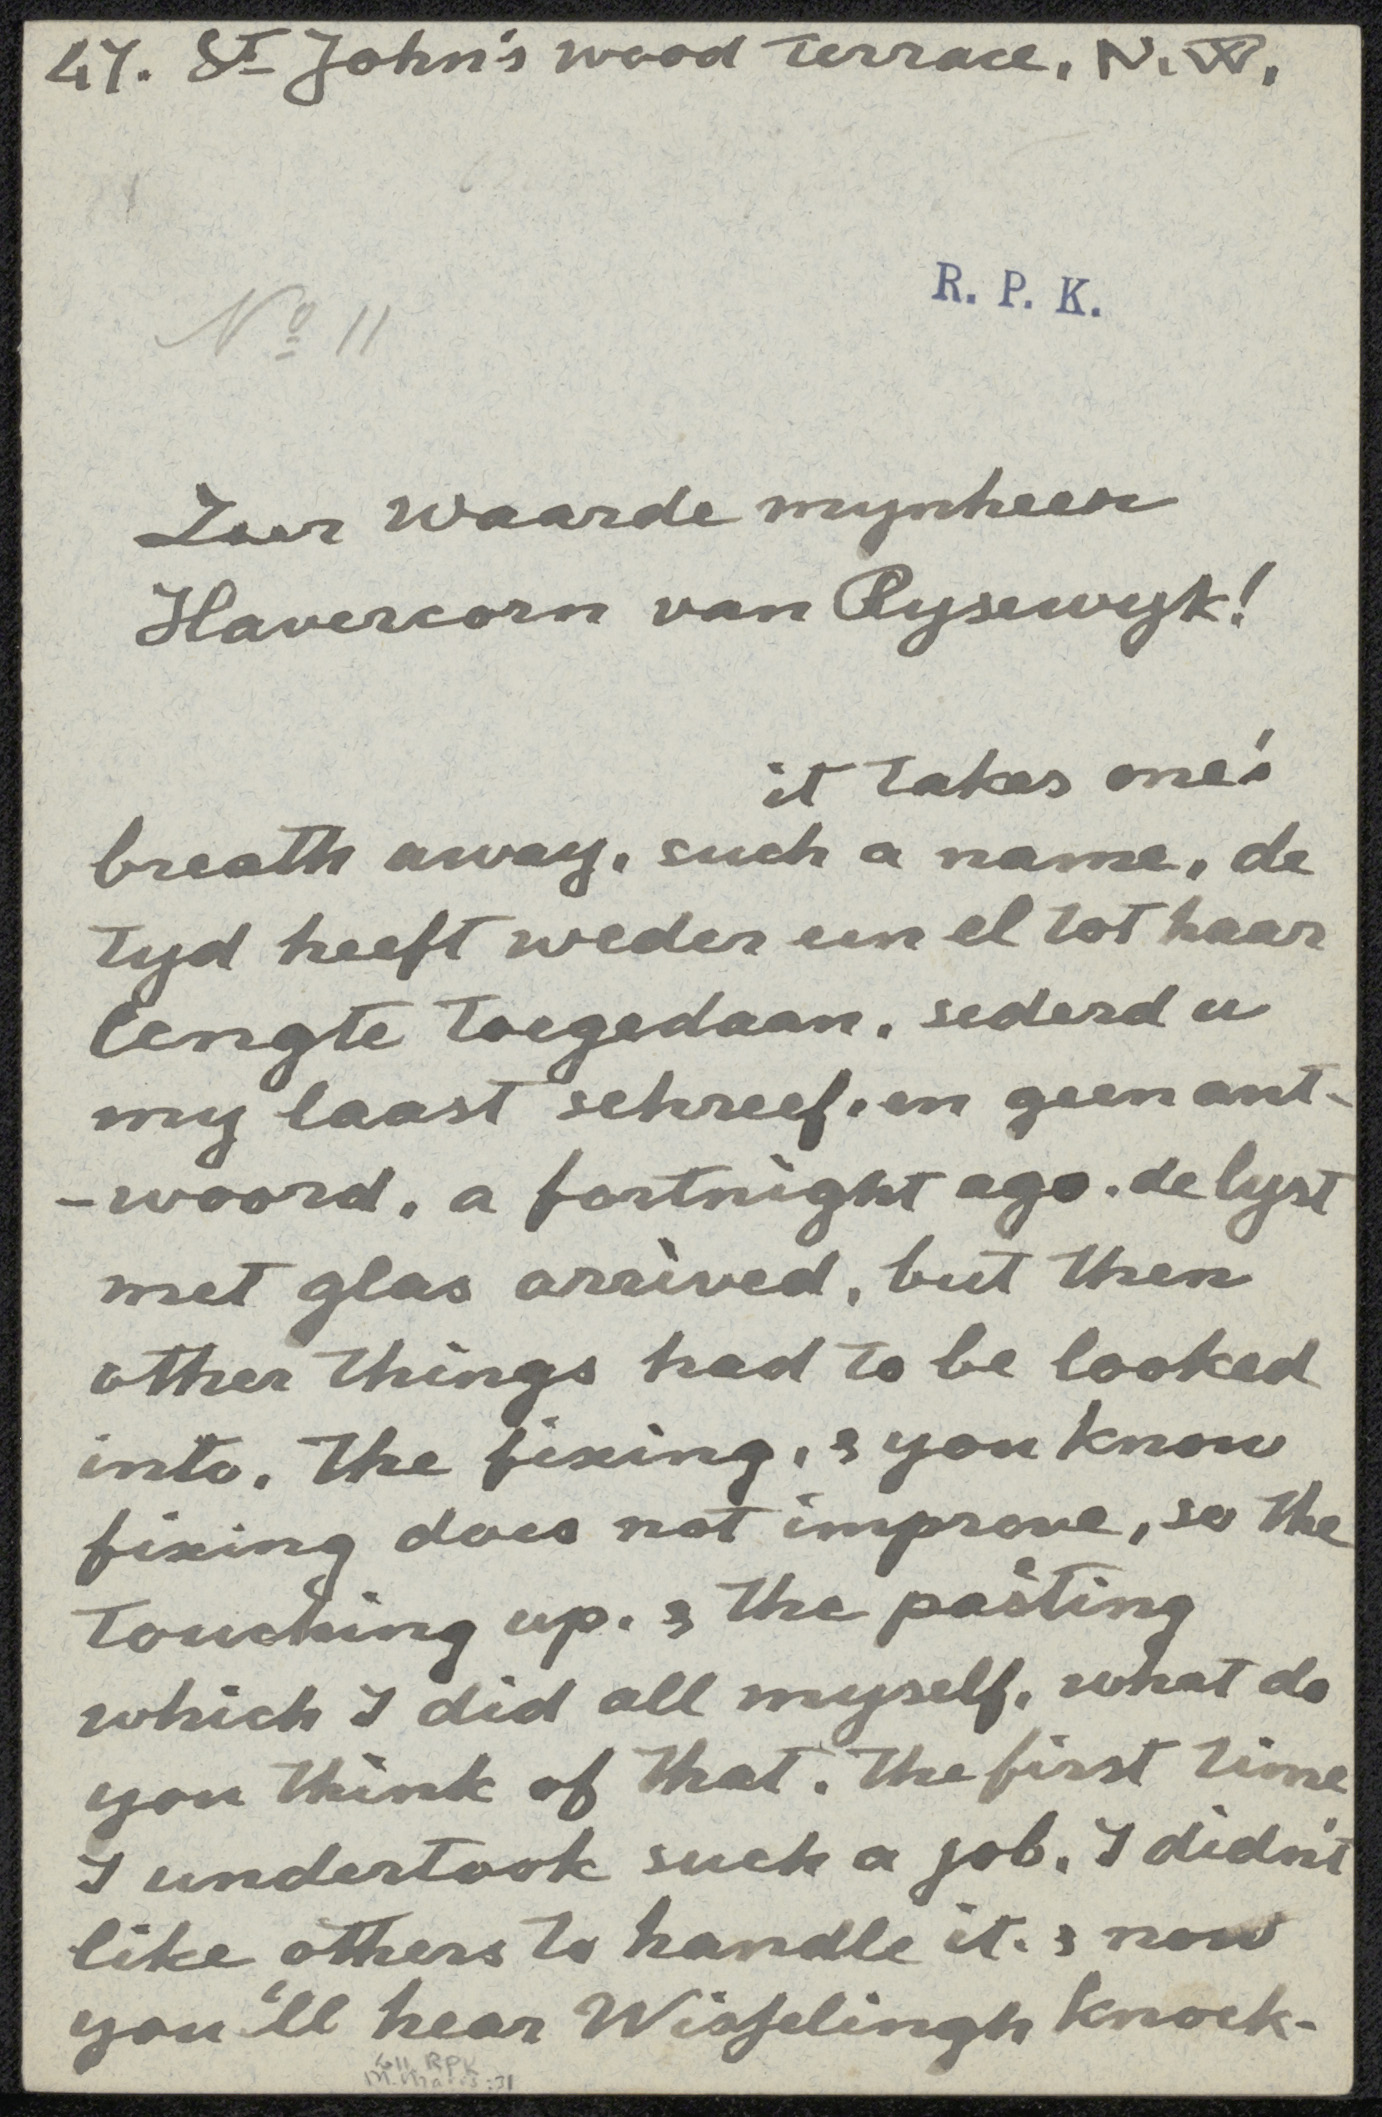 47. St John's wood terrace. N.W.
R. P. K.
No 11
Zeer Waarde mynheer
Havercorn van Rysewyk!
it takes one's
breath away, such a name, de
tyd heeft weder een el tot haar
lengte toegedaan. sederd u
my laast schreef. en geen ant-
-woord. a fortnight ago. de lyst
met glas arrived, but then
other things had to be looked
into. the fixing, & you know
fixing does not improve, so the
touching up. & the pasting
which I did all myself. what do
you think of that. the first time
I undertook such a job. I didn't
like others to handle it. & now
you'll hear Wisselingh knock-
M. Maris: 31